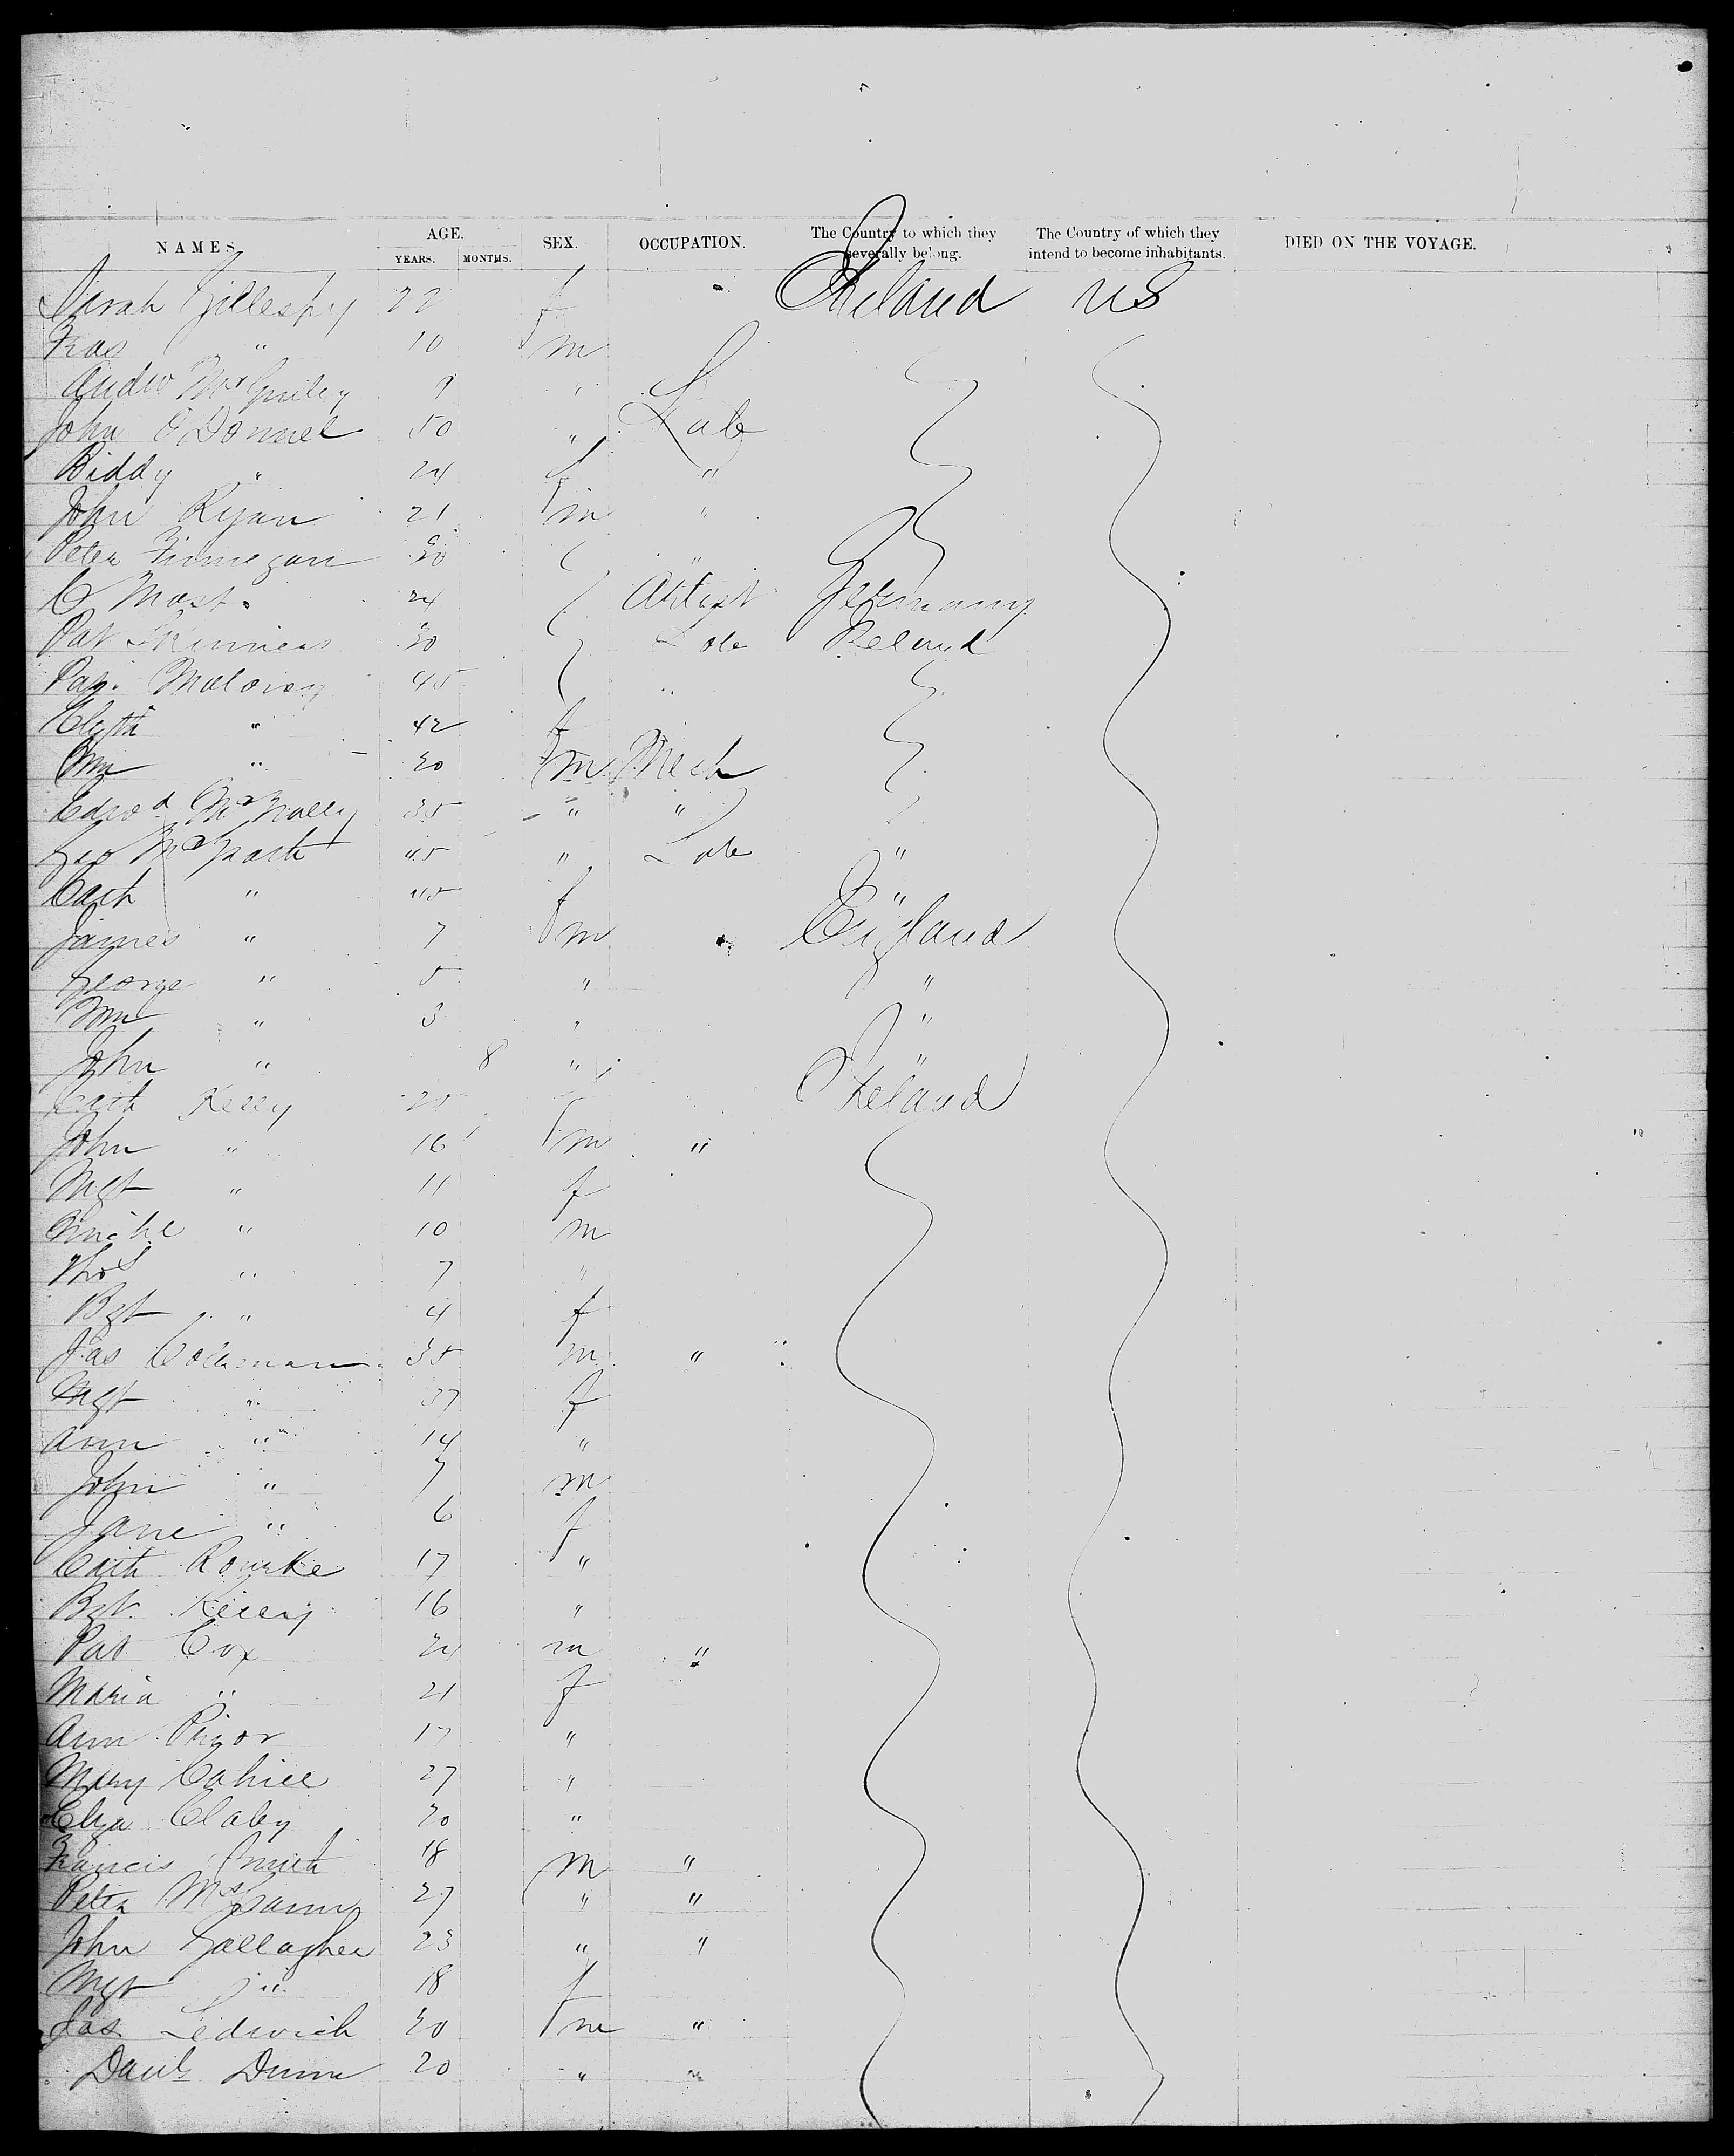 NAMES. AGE. SEX. OCCUPATION. The Country to which they severally belong. The Country of which they intend to become inhabitants. DIED ON THE VOYAGE.
YEARS. MONTHS.
Sarah Gillespy 22 f Ireland US
Fras " 10 m
Andw 9 "
John O'Donnel 50 " Lab
Biddy " 24 f "
John Ryan 21 m "
Peter Finnegan 30 "
C Mast. 24 Artist Germany
Pat 30 Lab Ireland
Pat. Moloney 45 "
Elizth " 42 f
Wm " 20 m Mech
Edwd McNally 35 " "
Geo McGrath 45 " Lab "
Cath " 45 f "
James " 7 m England
George " 5 " "
Wm " 3 " "
John " 8 " "
Cath Kelly 25 Ireland
John " 16 m "
Mgt " 11 f
Michl " 10 m
Thos " 7 "
Bgt " 4 f
Jas Coleman 35 m "
Mgt " 37 f
Ann " 14 "
John " 7 m
Jane " 6 f
Cath Rourke 17 "
Bgt. Kelly 16 "
Pat Cox 24 m "
Maria " 21 f
Ann Pryor 17 "
Mary Cahill 27 "
Eliza Claby 20 "
Francis Smith 18 m "
Peter McGann 27 " "
John Gallagher 23 " "
Mgt " 18 f
Jas Ledwich 20 m "
Danl Dunn 20 " "